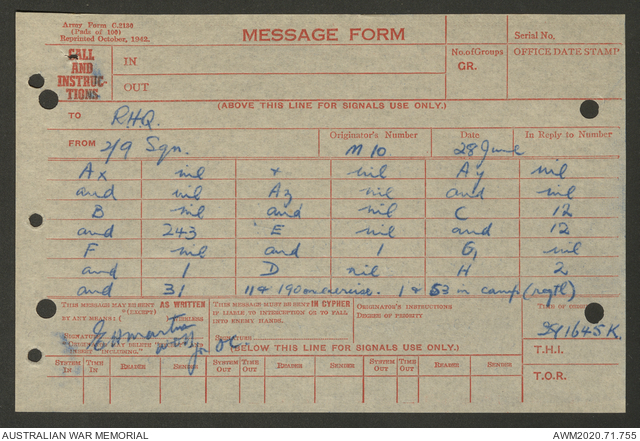 Army Form C.2136
(Pads of 100)
Reprinted October, 1942.
MESSAGE FORM
Serial No.
CALL
AND
INSTRUC-
TIONS
IN
OUT
No. of Groups
GR.
OFFICE DATE STAMP
(ABOVE THIS LINE FOR SIGNALS USE ONLY.)
TO RHQ.
FROM 2/9 Sqn. Originator's Number M 10 Date 28 June In Reply to Number
Ax nil + nil Ay nil
and nil Az nil and nil
B nil and nil C 12
and 243 E nil and 12
F nil and 1 G nil
and 1 D nil H 2
and 31 11 & 190 on exercise. 1 & 53 in camp (regtl)
THIS MESSAGE MAY BE SENT AS WRITTEN
BY ANY MEANS (EXCEPT) WIRELESS
THIS MESSAGE MUST BE SENT IN CYPHER
IF LIABLE TO INTERCEPTION OR TO FALL
INTO ENEMY HANDS.
ORIGINATOR'S INSTRUCTIONS
DEGREE OF PRIORITY
TIME OF
1645K.
SIGNATURE
for OC.
BELOW THIS LINE FOR SIGNALS USE ONLY.)
T.H.I.
SYSTEM IN TIME IN READER SENDER SYSTEM OUT TIME OUT READER SENDER SYSTEM OUT TIME OUT READER SENDER
T.O.R.
AUSTRALIAN WAR MEMORIAL AWM2020.71.755